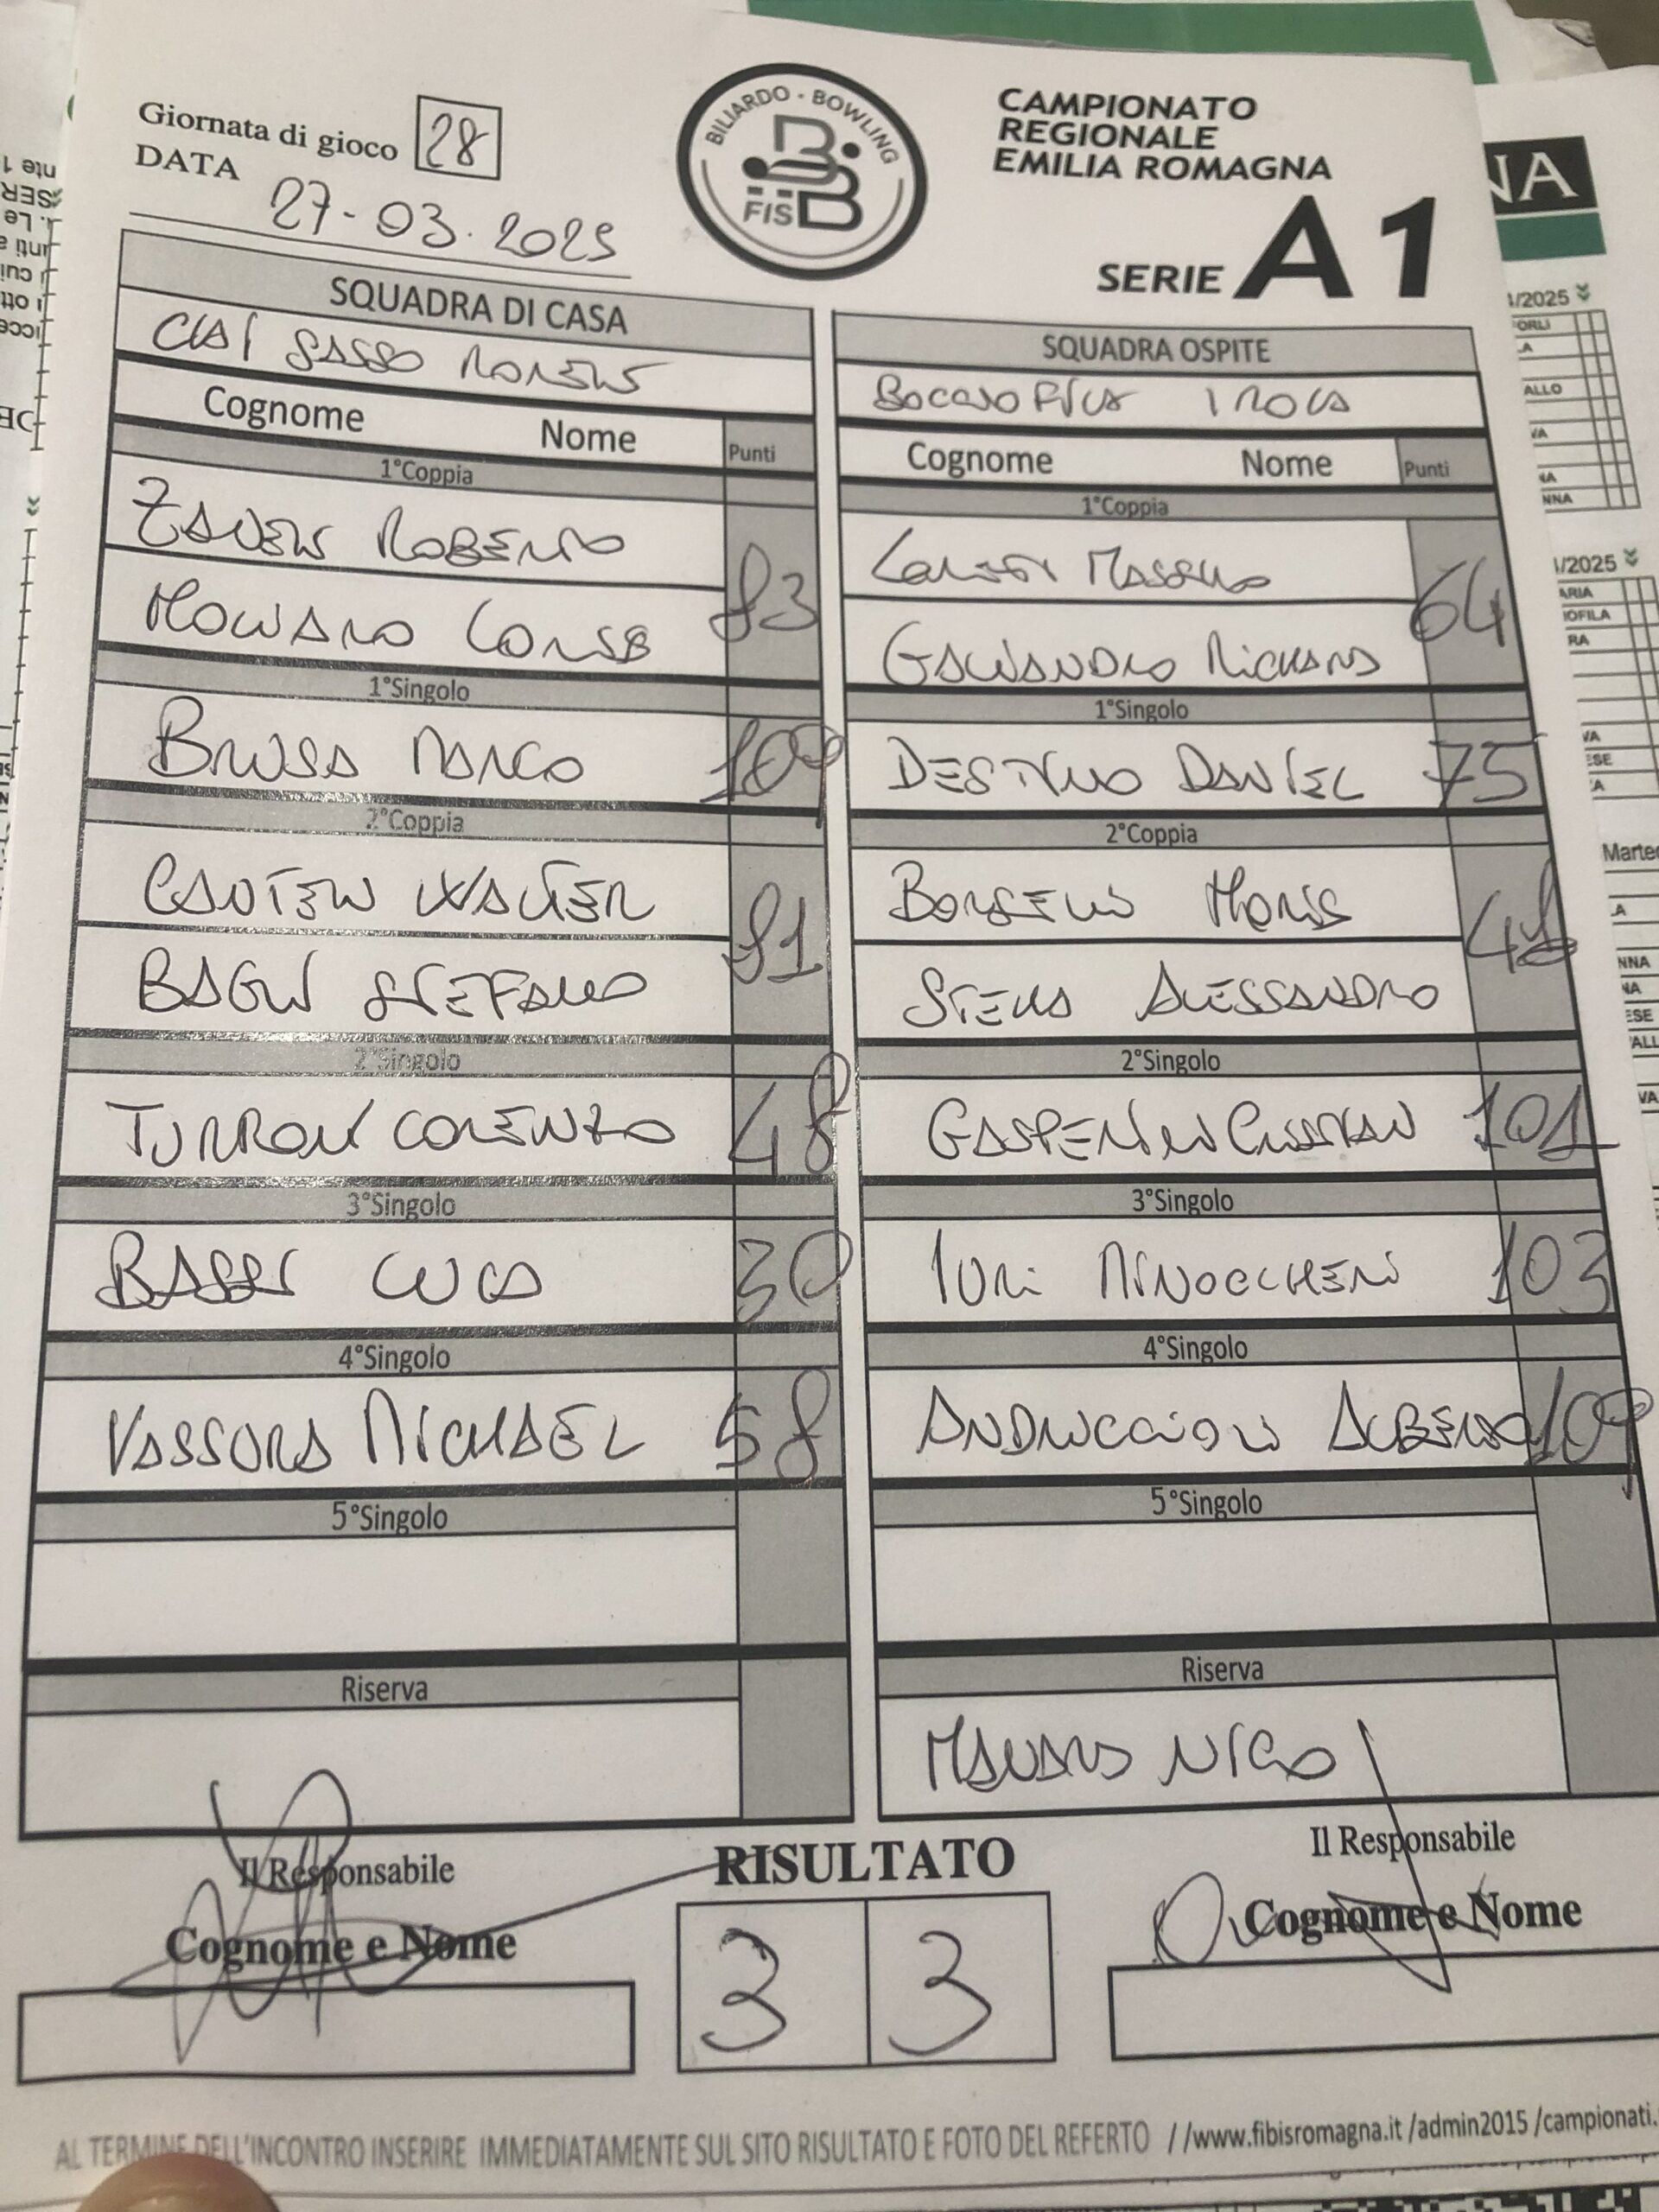 Giornata di gioco 28
DATA 27-03-2025
BILIARDO - BOWLING
FISBB
CAMPIONATO
REGIONALE
EMILIA ROMAGNA
SERIE A1
SQUADRA DI CASA
SASSO
Cognome Nome Punti
1°Coppia
ROBERTO
83
1°Singolo
BRUSA MARCO 109
2°Coppia
WALTER
91
BAGLI STEFANO
2°Singolo
TURRONI LORENZO 48
3°Singolo
BASSI LUCA 30
4°Singolo
VASSURA MICHAEL 58
5°Singolo
Riserva
Il Responsabile
Cognome e Nome
SQUADRA OSPITE
BOCCIOFILA IMOLA
Cognome Nome Punti
1°Coppia
MASSIMO
64
GALLIANDRO RICHARD
1°Singolo
DESTINO DANIEL 75
2°Coppia
BORSELLI MORIS
48
STELLA ALESSANDRO
2°Singolo
GASPERINI CRISTIAN 101
3°Singolo
IURI MINOCCHERI 103
4°Singolo
ANDRUCCIOLI ALBERTO 109
5°Singolo
Riserva
NICO
Il Responsabile
Cognome e Nome
RISULTATO
3 3
AL TERMINE DELL'INCONTRO INSERIRE IMMEDIATAMENTE SUL SITO RISULTATO E FOTO DEL REFERTO //www.fibisromagna.it /admin2015 /campionati.
/2025
ALLO
NNA
/2025
ARIA
IOFILA
RA
ESE
Marte
NNA
ESE